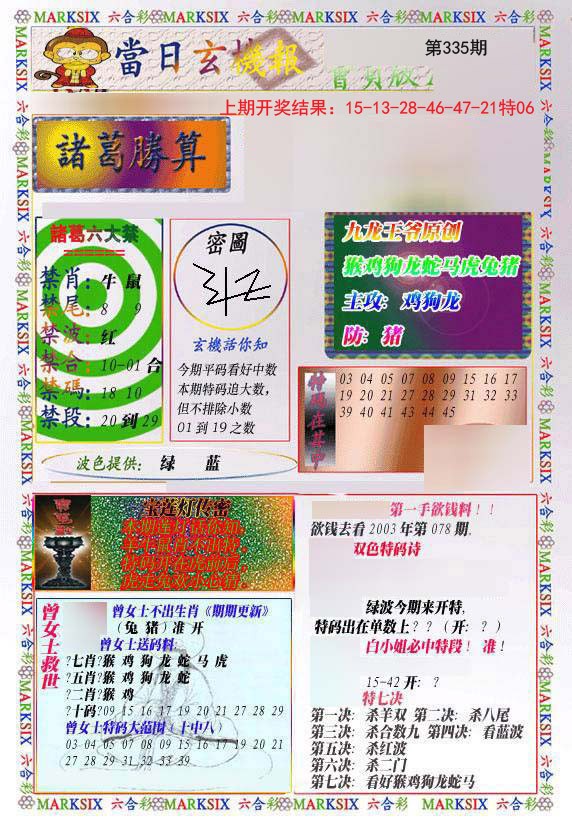 MARKSIX 六合彩 MARKSIX 六合彩 MARKSIX 六合彩 MARKSIX 六合彩 MARKSIX
當日玄機報
第335期
上期开奖结果：15-13-28-46-47-21特06
諸葛勝算
諸葛六大禁
禁肖：牛 鼠
禁尾：8 9
禁波：红
禁合：10-01合
禁碼：18 10
禁段：20到29
密圖
玄機活你知
今期平码看好中数
本期特码追大数，
但不排除小数
01到19之数
九龙王爷原创
猴鸡狗龙蛇马虎兔猪
主攻：鸡狗龙
防：猪
特码在其中
03 04 05 07 08 09 15 16 17
19 20 21 27 28 29 31 32 33
39 40 41 43 44 45
波色提供：绿 蓝
宝莲灯传密
曾女士救世
曾女士不出生肖《期期更新》
（兔 猪）准 开
曾女士送码料:
?七肖?猴 鸡 狗 龙 蛇 马 虎
?五肖?猴 鸡 狗 龙 蛇
?二肖?猴 鸡
?十码?09 15 16 17 19 20 21 27 28 29
曾女士特码大范围（十中八）
03 04 05 07 08 09 15 16 17 19 20 21
27 28 29 31 32 33 39
第一手欲钱料！！
欲钱去看2003年第078期.
双色特码诗
绿波今期来开特,
特码出在单数上？？（开：？）
白小姐必中特段！ 准！
15-42 开: ?
特七决
第一决：杀羊双 第二决：杀八尾
第三决：杀合数九 第四决：看蓝波
第五决：杀红波
第六决：杀二门
第七决：看好猴鸡狗龙蛇马
MARKSIX 六合彩 MARKSIX 六合彩 MARKSIX 六合彩 MARKSIX 六合彩 MARKSIX